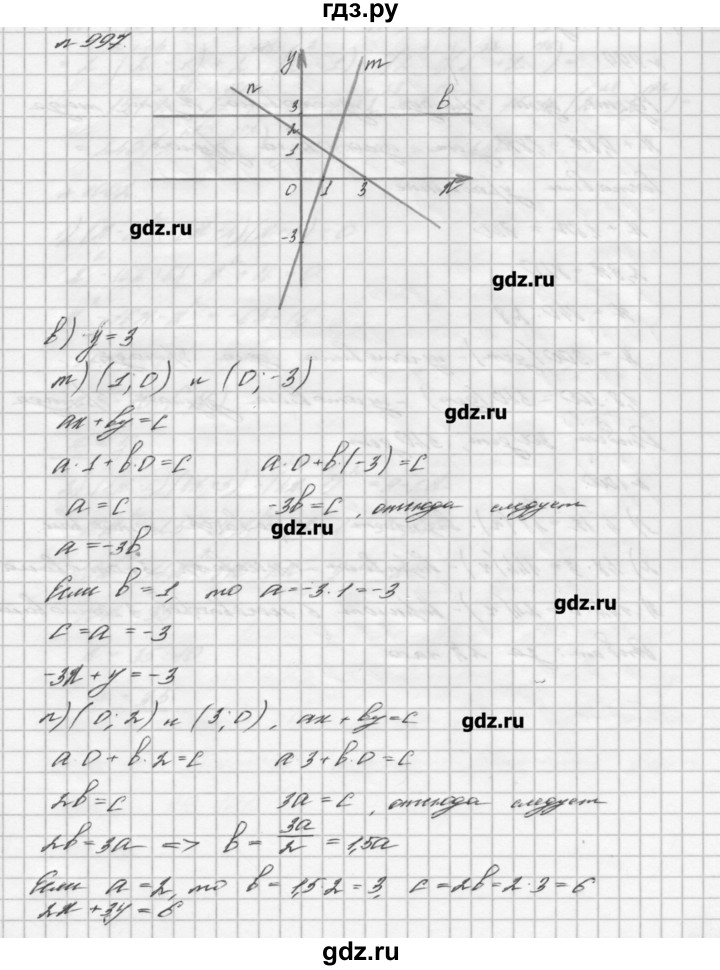 гдз.ру
n 997.
y
m
n
в
3
2
1
0 1 3 x
-3
gdz.ru
gdz.ru
в) y = 3
m) (1; 0) и (0; -3)
gdz.ru
ax + by = c
a·1 + b·0 = c a·0 + b·(-3) = c
a = c -3b = c, откуда следует
gdz.ru
a = -3b
Если b = 1, то a = -3·1 = -3
gdz.ru
c = a = -3
-3x + y = -3
n) (0; 2) и (3; 0), ax + by = c
gdz.ru
a·0 + b·2 = c a·3 + b·0 = c
2b = c 3a = c, откуда следует
2b = 3a => b = 3a/2 = 1,5a
Если a = 2, то b = 1,5·2 = 3, c = 2b = 2·3 = 6
2x + 3y = 6
gdz.ru